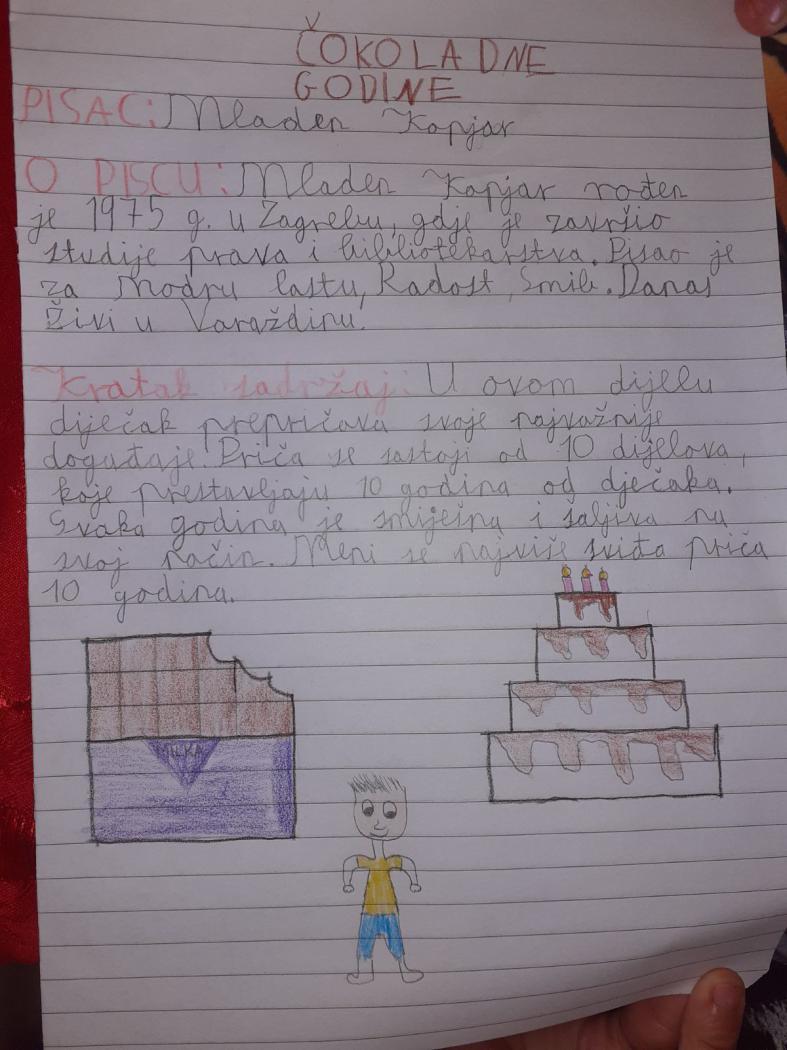 ČOKOLADNE
GODINE
PISAC: Mladen Kopjar
O PISCU: Mladen Kopjar rođen
je 1975 g. u Zagrebu, gdje je završio
studije prava i bibliotekarstva. Pisao je
za Modru lastu, Radost, Smib. Danas
Živi u Varaždinu.
Kratak sadržaj: U ovom dijelu
diječak prepričava svoje najvažnije
događaje. Priča se sastoji od 10 dijelova,
koje prestavljaju 10 godina od dječaka.
Svaka godina je smiješna i šaljiva na
svoj način. Meni se najviše sviđa priča
10 godina.
MILKA